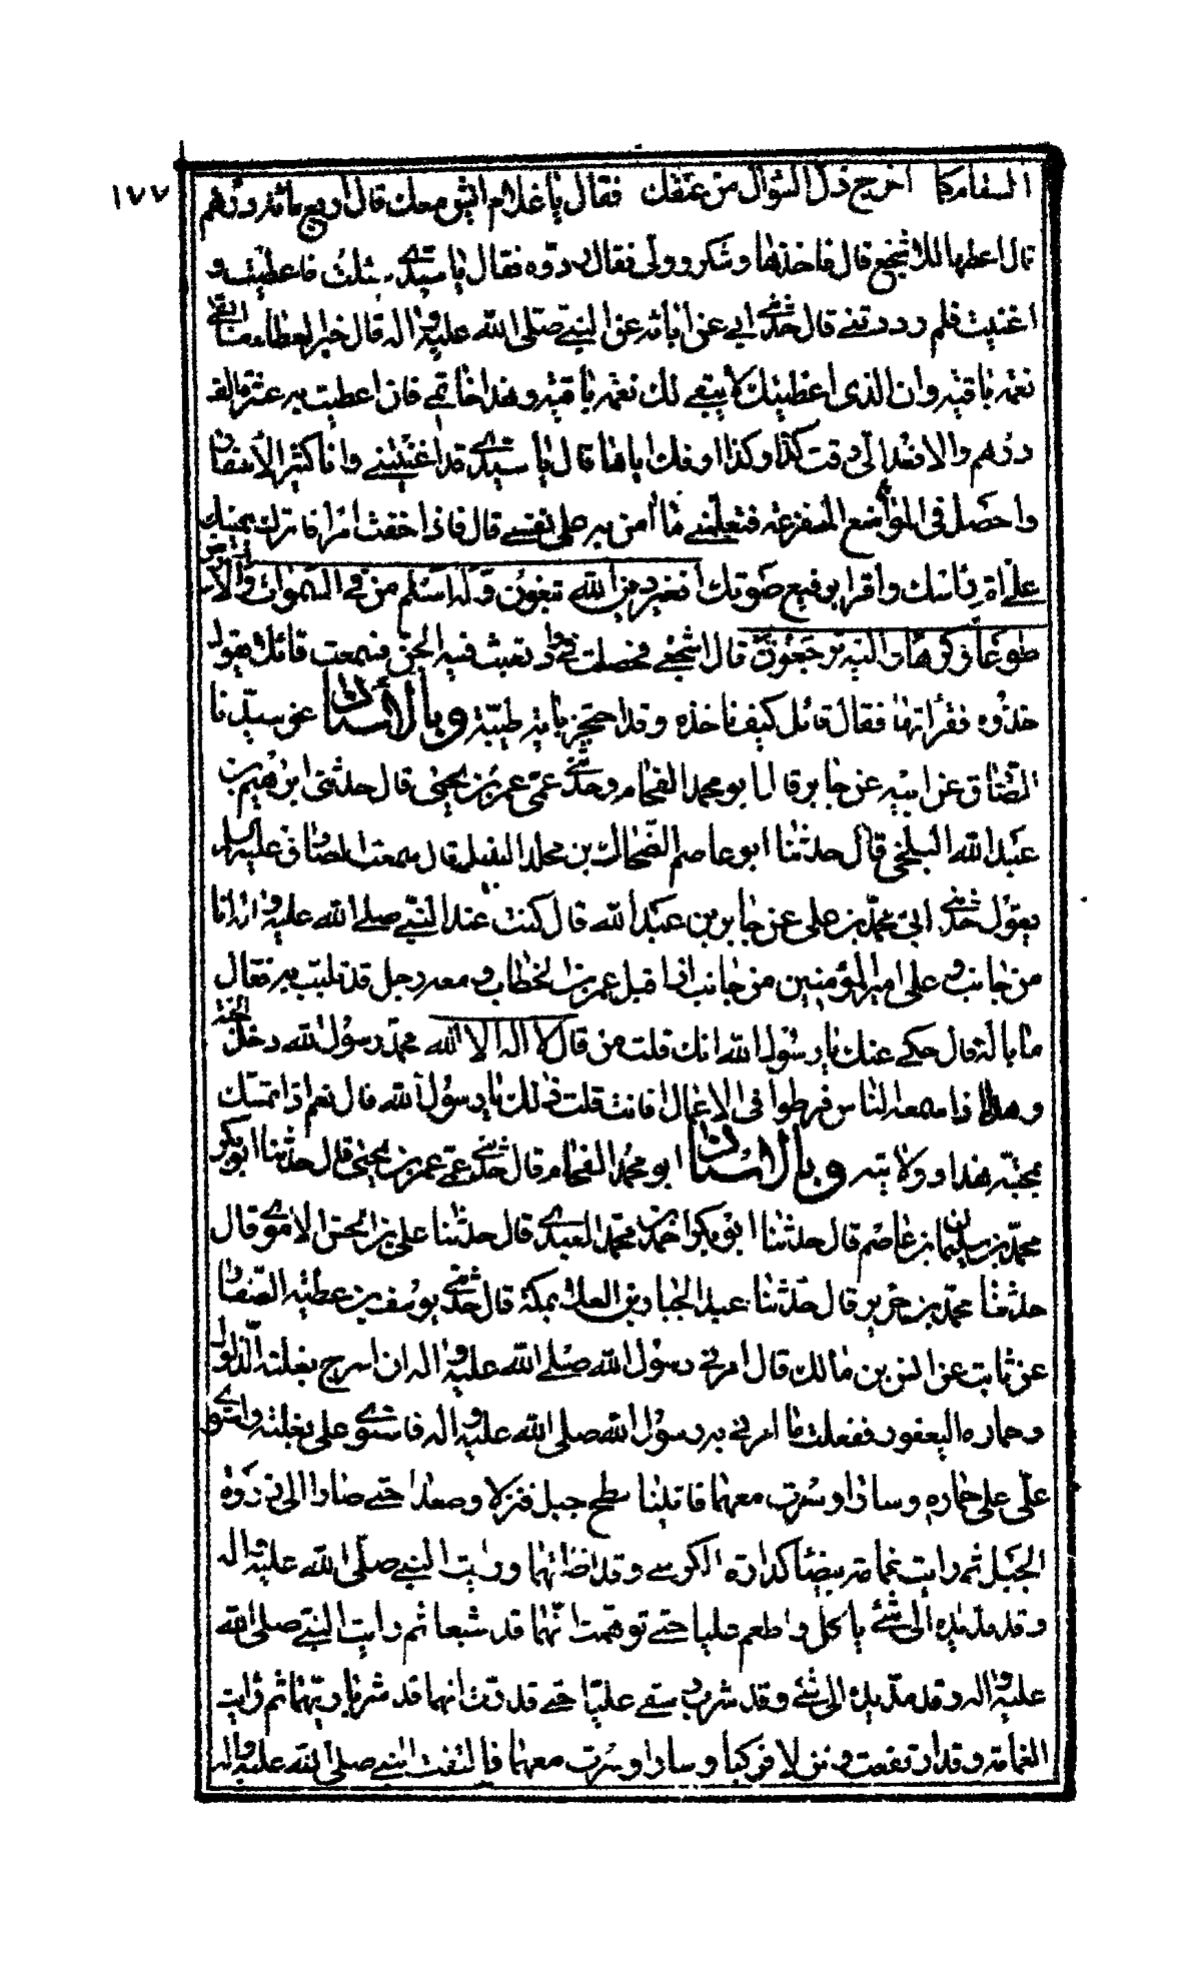 ١٧٧
السقام كما اخرج ذل السؤال من عنقك فقال يا غلام ايش معك قال اربع مائة درهم
قال اعطها للاشجع قال فاخذها وشكر وولى فقال ردوه فقال يا سيدي سئلت فاعطيت و
اغنيت فلم رددتني قال حدثني ابي عن ابائه عن النبي صلى الله عليه واله قال خير العطاء ما ابقى
نعمة باقية وان الذى اعطيتك لا يبقى لك نعمة باقية وهذا خاتمي فان اعطيت به عشرة الف
درهم والا فعد الى وقت كذا وكذا اوفك اياها قال يا سيدي قد اغنيتني وانا كثير الاسفار
واحصل في المواضع المفزعة فتعلمني ما امن به على نفسي قال فاذا خفت امرا فاترك يمينك
على ام راسك واقرا برفيع صوتك افغير دين الله تبغون وله اسلم من في السموات والارض
طوعا وكرها واليه ترجعون قال اشجع فحصلت في واد تعبث فيه الجن فسمعت قائلا يقول
خذوه فقراتها فقال قائل كيف ناخذه وقد احتجز باية طيبة وبالاسناد عن سيدنا
الصادق عن ابيه عن جابر قال ابو محمد الفحام وحدثني عمي عمر بن يحيى قال حدثني ابرهيم بن
عبد الله البلخي قال حدثنا ابو عاصم الضحاك بن مخلد النبيل قال سمعت الصادق عليه السلم
يقول حدثني ابي محمد بن على عن جابر بن عبد الله قال كنت عند النبي صلى الله عليه واله انا
من جانب وعلى امير المؤمنين من جانب اذ اقبل عمر بن الخطاب ومعه رجل قد تلبب به فقال
ما باله قال حكى عنك يا رسول الله انك قلت من قال لا اله الا الله محمد رسول الله دخل الجنة
وهذا اذا سمعه الناس فرطوا في الاعمال افانت قلت ذلك يا رسول الله قال نعم اذا تمسك
بمحبة هذا وولايته وبالاسناد ابو محمد الفحام قال حدثني عمي عمر بن يحيى قال حدثنا ابو بكر
محمد بن سليمان بن عاصم قال حدثنا ابو بكر احمد بن محمد العبدي قال حدثنا على بن الحسن الاموي قال
حدثنا محمد بن جرير قال حدثنا عبد الجبار بن العلا بمكة قال حدثني يوسف بن عطية الصفار
عن ثابت عن انس بن مالك قال امرني رسول الله صلى الله عليه واله ان اسرج بغلته الدلدل
وحماره اليعفور ففعلت ما امرني به رسول الله صلى الله عليه واله فاستوى على بغلته واستوى
على على حماره وسارا وسرت معهما فاتينا سطح جبل فنزلا وصعدا حتى صارا الى ذروة
الجبل ثم رايت غمامة بيضاء كدارة الكرسي وقد اظلتهما ورايت النبي صلى الله عليه واله
وقد مد يده الى شئ ياكل واطعم عليا حتى توهمت انهما قد شبعا ثم رايت النبي صلى الله
عليه واله وقد مد يده الى شئ وقد شرب وسقى عليا حتى قدرت انهما قد شربا ريهما ثم رايت
الغمامة وقد ارتفعت ونزلا فركبا وسارا وسرت معهما فالتفت النبي صلى الله عليه واله